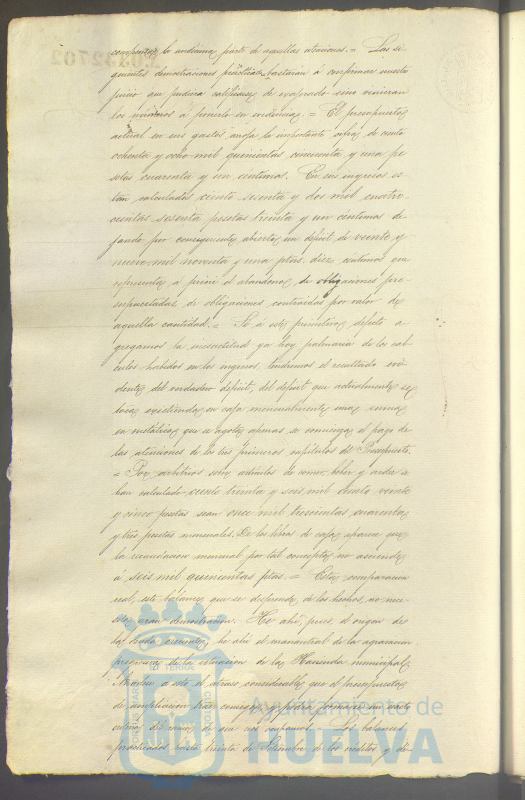 comprenda la undécima parte de aquellas atenciones. = Las si-
guientes demostraciones prácticas bastarán á confirmar nuestro
juicio que pudiera calificarse de exagerado sino vinieran
los números á ponerlo en evidencia. = El presupuesto
actual en sus gastos, arroja la importante cifra de ciento
ochenta y ocho mil quinientas cincuenta y una pe-
setas cuarenta y un centimos. En sus ingresos es-
tan calculados ciento sesenta y dos mil cuatro-
cientas sesenta pesetas treinta y un centimos de-
jando por consiguiente abierto un deficit de veinte y
nueve mil noventa y una ptas. diez centimos que
representa á priori el abandono de obligaciones pre-
supuestadas de obligaciones contraidas por valor de
aquella cantidad. = Si á este primitivo defecto a-
gregamos la inexactitud ya hoy palmaria de los cal-
culos habidos en los ingresos, tendremos el resultado evi-
dente del verdadero deficit, del deficit que actualmente se
toca, existiendo en caja mensualmente una suma
en metálico, que se agota apenas se comienza el pago de
las atenciones de los tres primeros capítulos del Presupuesto.
= Por arbitrios sobre artículos de comer, beber y arder se
han calculado ciento treinta y seis mil ciento veinte
y cinco pesetas sean once mil trescientas cuarenta
y tres pesetas mensuales. De los libros de caja aparece que
la recaudacion mensual por tal concepto, no asciende
a seis mil quinientas ptas. = Esta comparacion
real, este balance que se desprende de los hechos, no nece-
sita gran demostracion. He ahí, pues, el origen de
la deuda creciente, he ahí el manantial de la agravacion
progresiva de la situacion de la Hacienda municipal.
Añadase a esto el atraso considerable que el presupuesto
de ampliacion trae consigo y podrá formarse un exacto
criterio del ramo de que nos ocupamos. Los balances
practicados hasta treinta de Setiembre de los creditos y de-
ONUS MARIS
ET TERRÆ
CUSTODIA
Ayuntamiento de
HUELVA